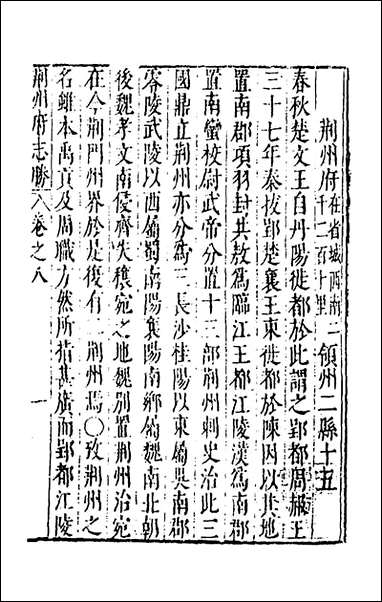 荊州府在省城西南二千二百十里領州二縣十五
春秋楚文王自丹陽徙都於此謂之郢都周赧王
三十七年秦拔郢楚襄王東徙都於陳因以其地
置南郡項羽封共敖爲臨江王都江陵漢爲南郡
置南蠻校尉武帝分置十三部荊州刺史治此三
國鼎立荊州亦分爲三長沙桂陽以東屬吳南郡
零陵武陵以西屬蜀南陽襄陽南鄉屬魏南北朝
後魏孝文南侵齊失穰宛之地魏別置荊州治宛
在今荊門州界於是復有二荊州焉〇攷荊州之
名雖本禹貢及周職方然所指甚廣而郢都江陵
荊州府志勝 卷之八 一